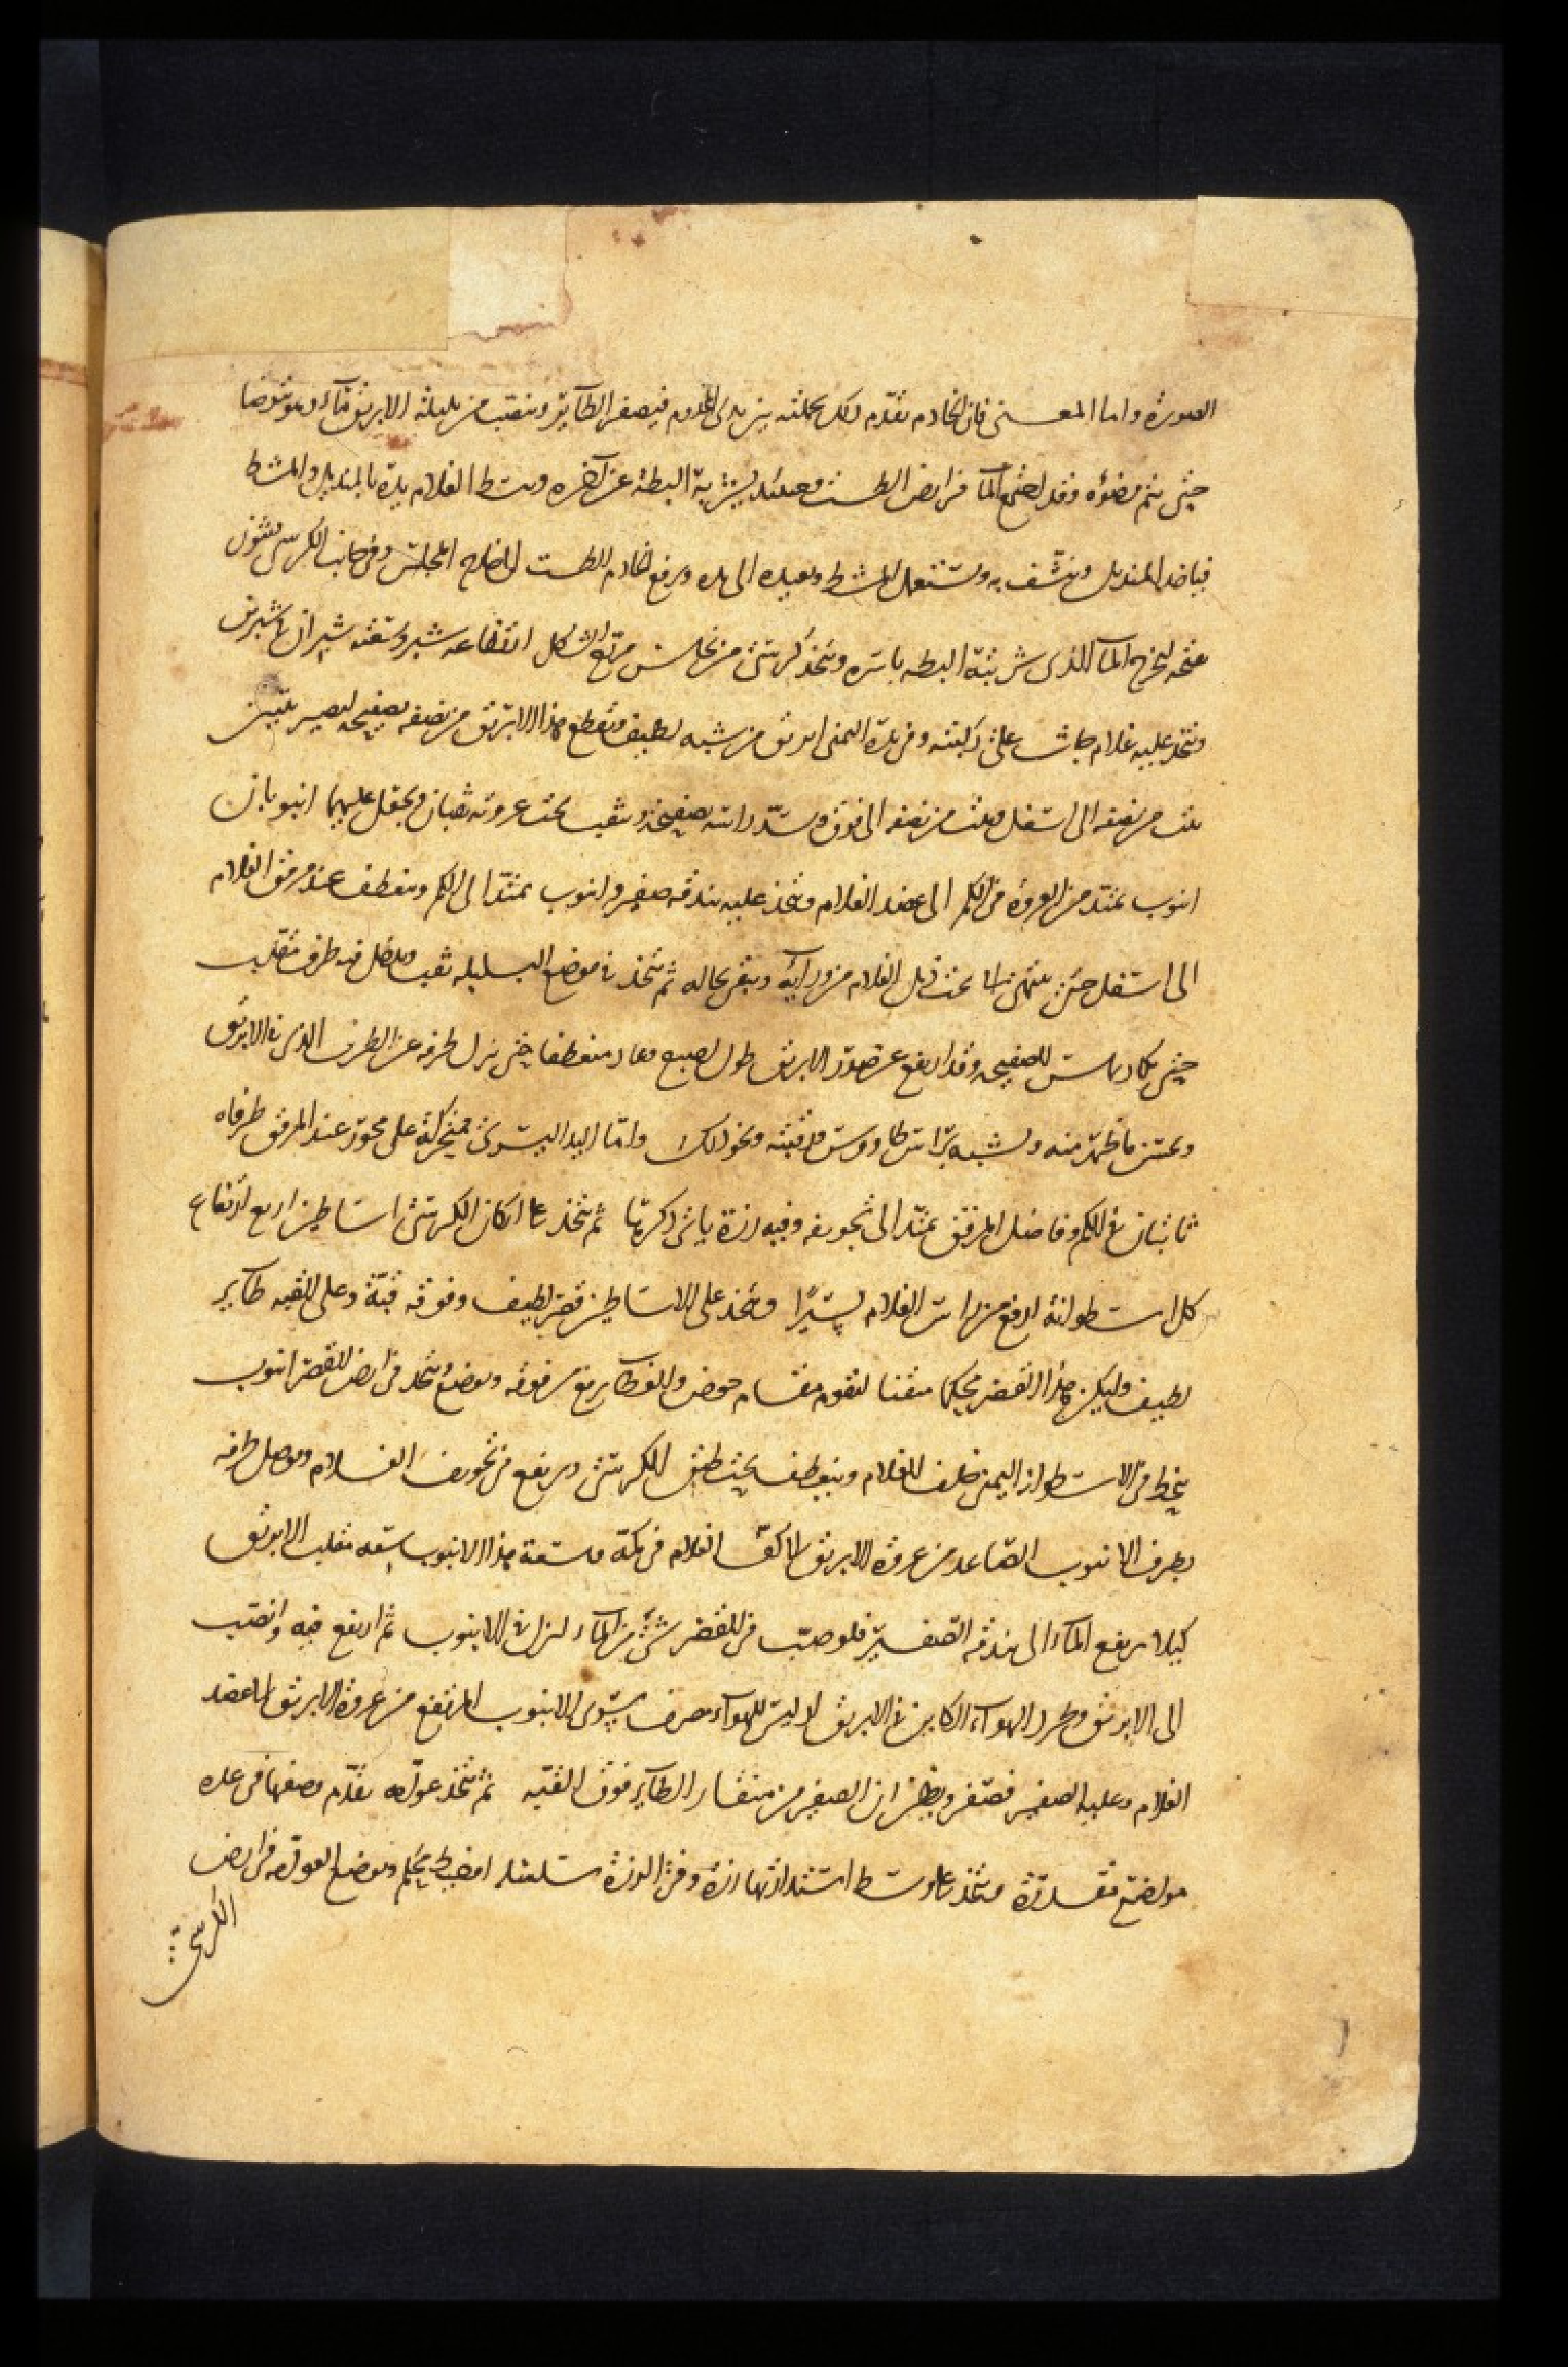 الصورة واما المعنى فان الخادم يقدم ذلك بجملته بين يدي المخدوم فيصفر الطاير وينصب من بلبلة الابريق ماء وهو يتوضا
حتى يتم وضوئه وقد اجتمع الما في ارض الطست وحينئذ يشربه البطة عن آخره ويبسط الغلام يده بالمنديل والمشط
فياخذ المنديل وينشف به ويستعمل المشط ويعيده الى يده ويرفع الخادم الطست الى خارج المجلس وفي جانب الكرسي بثيون
يفتحه ليخرج الما الذي شربته البطه باسره ويتخذ كرسي من نحاس مربع الشكل ارتفاعه شبر وسعته شبران في شبرين
ويتخذ عليه غلام جاث على ركبتيه وفي يده اليمنى ابريق من شبه لطيف ويقطع هذا الابريق من نصفه بصفيحه ليصير بيتين
بيت من نصفه الى اسفل وبيت من نصفه الى فوق ويسد راسه بصفيحة ويثقب تحت عروته ثقبان ويجعل عليهما انبوبان
انبوب يمتد من العروة في الكم الى عضد الغلام ويتخذ عليه بندقه صفير وانبوب يمتد الى الكم وينعطف عند مرفق الغلام
الى اسفل حتى ينتهي الى تحت ذيل الغلام من ورايه ويبقى بحاله ثم يتخذ في موضع البلبله ثقب ويدخل فيه طرف مقلب
حتى يكاد يماس الصفيحه وقد ارتفع عن صدر الابريق طول اصبع وعاد منعطفا حتى نزل طرفه عن الطرف الذي في الابريق
ويحسن ما ظهر منه ويشبه براس طاووس ورقبته ونحو ذلك واما اليد اليسرى فمتحركة على محور عند المرفق طرفاه
ثابتان في الكم وفاضل المرفق يمتد الى تجويفه وفيه رزة ياتي ذكرها ثم يتخذ على اركان الكرسي اساطين اربع ارتفاع
كل اسطوانة ارفع من راس الغلام يسيرا ويتخذ على الاساطين قصر لطيف وفوقه قبة وعلى القبه طاير
لطيف وليكن هذا القصر محكما متقنا ليقوم مقام حوض والقطاير فوقه ويوضع ويتخذ في ارض القصر انبوب
ينحط في الاسطوانة اليمنى خلف الغلام وينعطف تحت طبق الكرسي ويرتفع في تجويف الغلام ويوصل طرفه
بطرف الانبوب الصاعد من عروة الابريق الى كف الغلام في كمه وسعة هذا الانبوب بسعه مقلب الابريق
كيلا يرتفع الماء الى بندقه الصفير فلو صب في القصر شئ من الماء لنزل في الانبوب ثم ارتفع فيه وانصب
الى الابريق وطرد الهواء الكاين في الابريق اذ ليس للهواء مصرف سوى الانبوب المرتفع من عروة الابريق الى عضد
الغلام وعليه الصفير فصفر ويظن ان الصفير من منقار الطاير فوق القبه ثم يتخذ عوامه تقدم وصفها في عده
مواضع مقدره ويتخذ على وسط استدارتها رزة وفي الرزة سلسله اضبط يحكم ويوضع العوامه في ارض
الكرسي